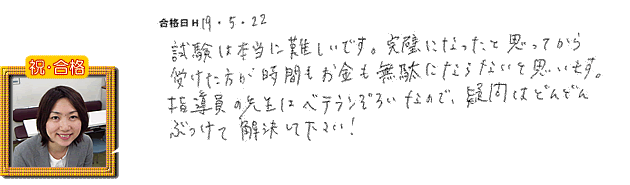 合格日 H19・5・22
祝・合格
試験は本当に難しいです。完璧になったと思ってから
受けた方が時間もお金も無駄にならないと思います。
指導員の先生はベテランぞろいなので、疑問はどんどん
ぶつけて解決して下さい!